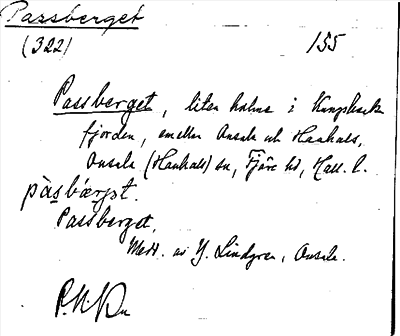 Passberget
(322) 155
Passberget, liten holme i Kungsbacka
fjorden, emellan Onsala och Hanhals,
Onsala (Hanhals) sn, Fjäre hd, Hall. l.
pàsbærjət.
Passberget.
Medd. av Y. Lindgren, Onsala.